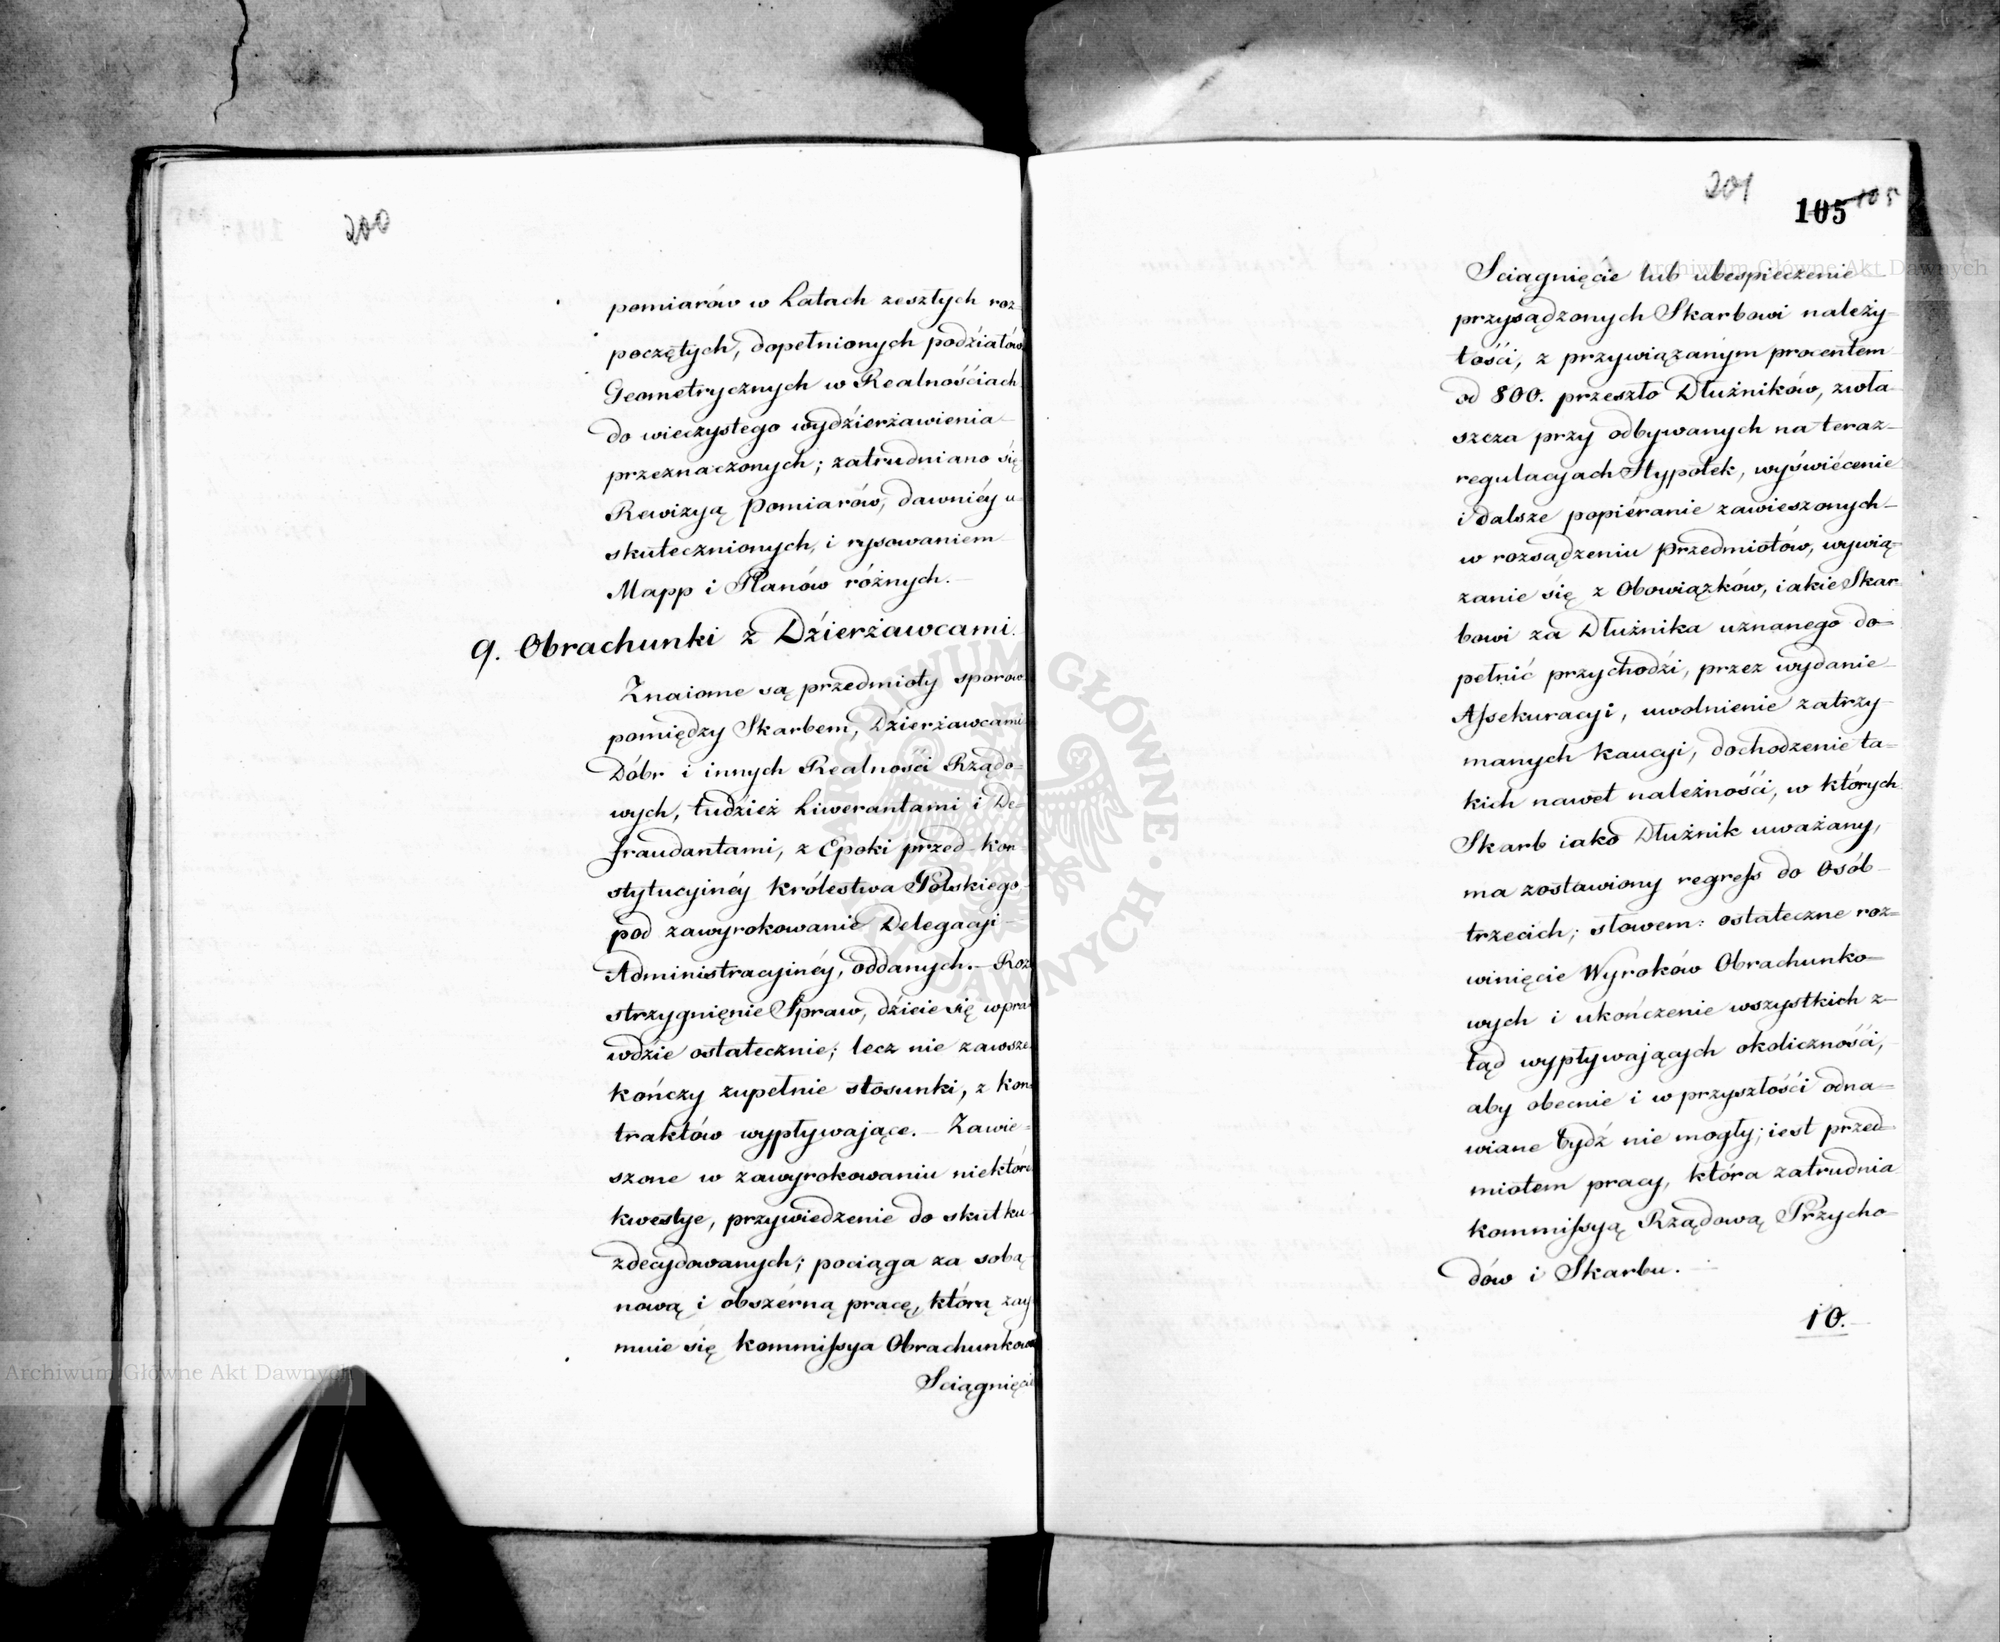 200
pomiarów w Latach zeszłych roz=
poczętych, dopełnionych podziałów
Geometrycznych w Realnościach
do wieczystego wydzierżawienia
przeznaczonych; zatrudniano się
Rewizyą Pomiarów, dawniéy u=
skutecznionych, i rysowaniem
Mapp i Planów różnych.—
9. Obrachunki z Dzierżawcami.
Znaiome są przedmioty sporów
pomiędzy Skarbem, Dzierżawcami
Dóbr i innych Realności Rządo=
wych, tudzież Liwerantami i De=
fraudantami, z Epoki przed-kon
stytucyinéy Królestwa Polskiego
pod zawyrokowanie Delegacyi
Administracyinéy, oddanych.— Roz
strzygnięnie Spraw, dzieie się wpra
wdzie ostatecznie; lecz nie zawsze
kończy zupełnie stosunki, z kon
traktów wypływające.— Zawie=
szone w zawyrokowaniu niektóre
kwestye, przywiedzenie do skutku
zdecydowanych; pociąga za sobą
nową i obszérną pracę, którą zay
muie się Kommissya Obrachunkowa
Sciągnięcie
201
105 105
Sciągnięcie lub ubespieczenie
przysądzonych Skarbowi należy-
tości, z przywiązanym procentem
od 800. przeszło Dłużników, zwła
szcza przy odbywanych na teraz
regulacyach Hypotek, wyświécenie
i dalsze popiéranie zawieszonych
w rozsądzeniu przedmiotów, wywią=
zanie się z Obowiązków, iakie Skar
bowi za Dłużnika uznanego do=
pełnić przychodzi, przez wydanie
Assekuracyi, uwolnienie zatrzy-
manych Kaucyi, dochodzenie ta=
kich nawet należności, w których
Skarb iako Dłużnik uważany,
ma zostawiony regress do Osób
trzecich; słowem: ostateczne roz=
winięcie Wyroków Obrachunko=
wych i ukończenie wszystkich z=
tąd wypływających okoliczności,
aby obecnie i w przyszłości odna=
wiane bydź nie mogły; iest przed=
miotem pracy, która zatrudnia
Kommissyą Rządową Przycho=
dów i Skarbu.—
10.
Archiwum Główne Akt Dawnych
Archiwum Główne Akt Dawnych
ARCHIWUM GŁÓWNE AKT DAWNYCH